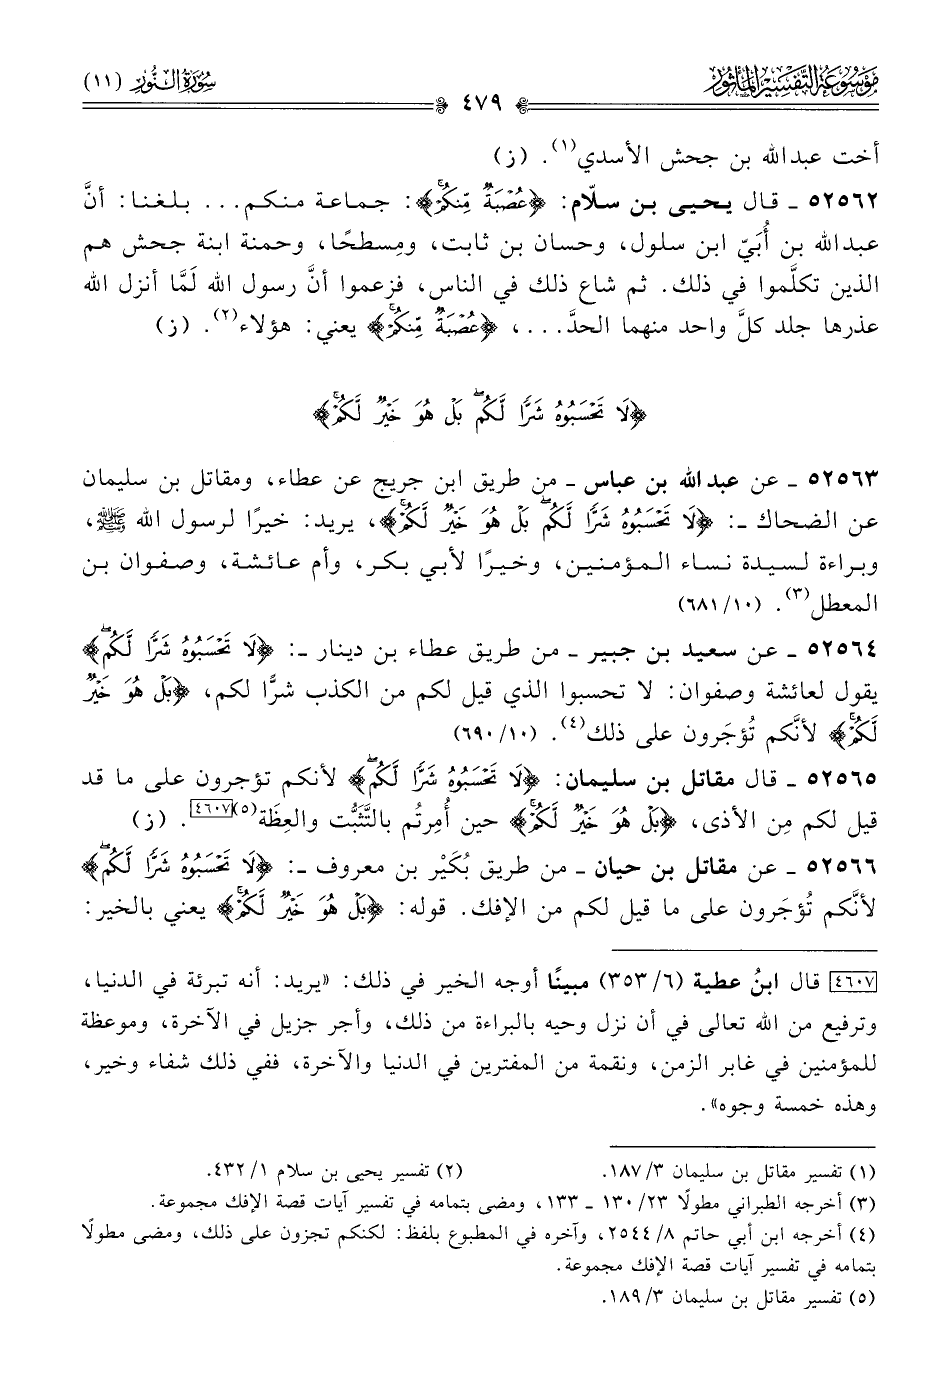 مَوْسُوعَةُ التَّفْسِيرِ المَأْثُورِ
سُورَةُ النُّورِ (١١)
٤٧٩
أخت عبدالله بن جحش الأسدي(١). (ز)
٥٢٥٦٢ ـ قال يحيى بن سلّام: ﴿عُصْبَةٌ مِّنكُمْۚ﴾: جماعة منكم... بلغنا: أنَّ
عبدالله بن أُبَيّ ابن سلول، وحسان بن ثابت، ومِسطحًا، وحمنة ابنة جحش هم
الذين تكلَّموا في ذلك. ثم شاع ذلك في الناس، فزعموا أنَّ رسول الله لَمَّا أنزل الله
عذرها جلد كلَّ واحد منهما الحدَّ...، ﴿عُصْبَةٌ مِّنكُمْۚ﴾ يعني: هؤلاء(٢). (ز)
﴿لَا تَحْسَبُوهُ شَرًّا لَّكُمۖ بَلْ هُوَ خَيْرٌ لَّكُمْۚ﴾
٥٢٥٦٣ ـ عن عبدالله بن عباس ـ من طريق ابن جريج عن عطاء، ومقاتل بن سليمان
عن الضحاك ـ: ﴿لَا تَحْسَبُوهُ شَرًّا لَّكُمۖ بَلْ هُوَ خَيْرٌ لَّكُمْۚ﴾، يريد: خيرًا لرسول الله ﷺ،
وبراءة لسيدة نساء المؤمنين، وخيرًا لأبي بكر، وأم عائشة، وصفوان بن
المعطل(٣). (١٠/ ٦٨١)
٥٢٥٦٤ ـ عن سعيد بن جبير ـ من طريق عطاء بن دينار ـ: ﴿لَا تَحْسَبُوهُ شَرًّا لَّكُمۖ﴾
يقول لعائشة وصفوان: لا تحسبوا الذي قيل لكم من الكذب شرًّا لكم، ﴿بَلْ هُوَ خَيْرٌ
لَّكُمْۚ﴾ لأنَّكم تُؤجَرون على ذلك(٤). (١٠/ ٦٩٠)
٥٢٥٦٥ ـ قال مقاتل بن سليمان: ﴿لَا تَحْسَبُوهُ شَرًّا لَّكُمۖ﴾ لأنكم تؤجرون على ما قد
قيل لكم مِن الأذى، ﴿بَلْ هُوَ خَيْرٌ لَّكُمْۚ﴾ حين أُمِرتُم بالتَّثَبُّت والعِظَة(٥)[٤٦٠٧]. (ز)
٥٢٥٦٦ ـ عن مقاتل بن حيان ـ من طريق بُكَيْر بن معروف ـ: ﴿لَا تَحْسَبُوهُ شَرًّا لَّكُمۖ﴾
لأنَّكم تُؤجَرون على ما قيل لكم من الإفك. قوله: ﴿بَلْ هُوَ خَيْرٌ لَّكُمْۚ﴾ يعني بالخير:
[٤٦٠٧] قال ابنُ عطية (٦/ ٣٥٣) مبينًا أوجه الخير في ذلك: «يريد: أنه تبرئة في الدنيا،
وترفيع من الله تعالى في أن نزل وحيه بالبراءة من ذلك، وأجر جزيل في الآخرة، وموعظة
للمؤمنين في غابر الزمن، ونقمة من المفترين في الدنيا والآخرة، ففي ذلك شفاء وخير،
وهذه خمسة وجوه».
(١) تفسير مقاتل بن سليمان ٣/ ١٨٧.
(٢) تفسير يحيى بن سلام ١/ ٤٣٢.
(٣) أخرجه الطبراني مطولًا ٢٣/ ١٣٠ ـ ١٣٣، ومضى بتمامه في تفسير آيات قصة الإفك مجموعة.
(٤) أخرجه ابن أبي حاتم ٨/ ٢٥٤٤، وآخره في المطبوع بلفظ: لكنكم تجزون على ذلك، ومضى مطولًا
بتمامه في تفسير آيات قصة الإفك مجموعة.
(٥) تفسير مقاتل بن سليمان ٣/ ١٨٩.